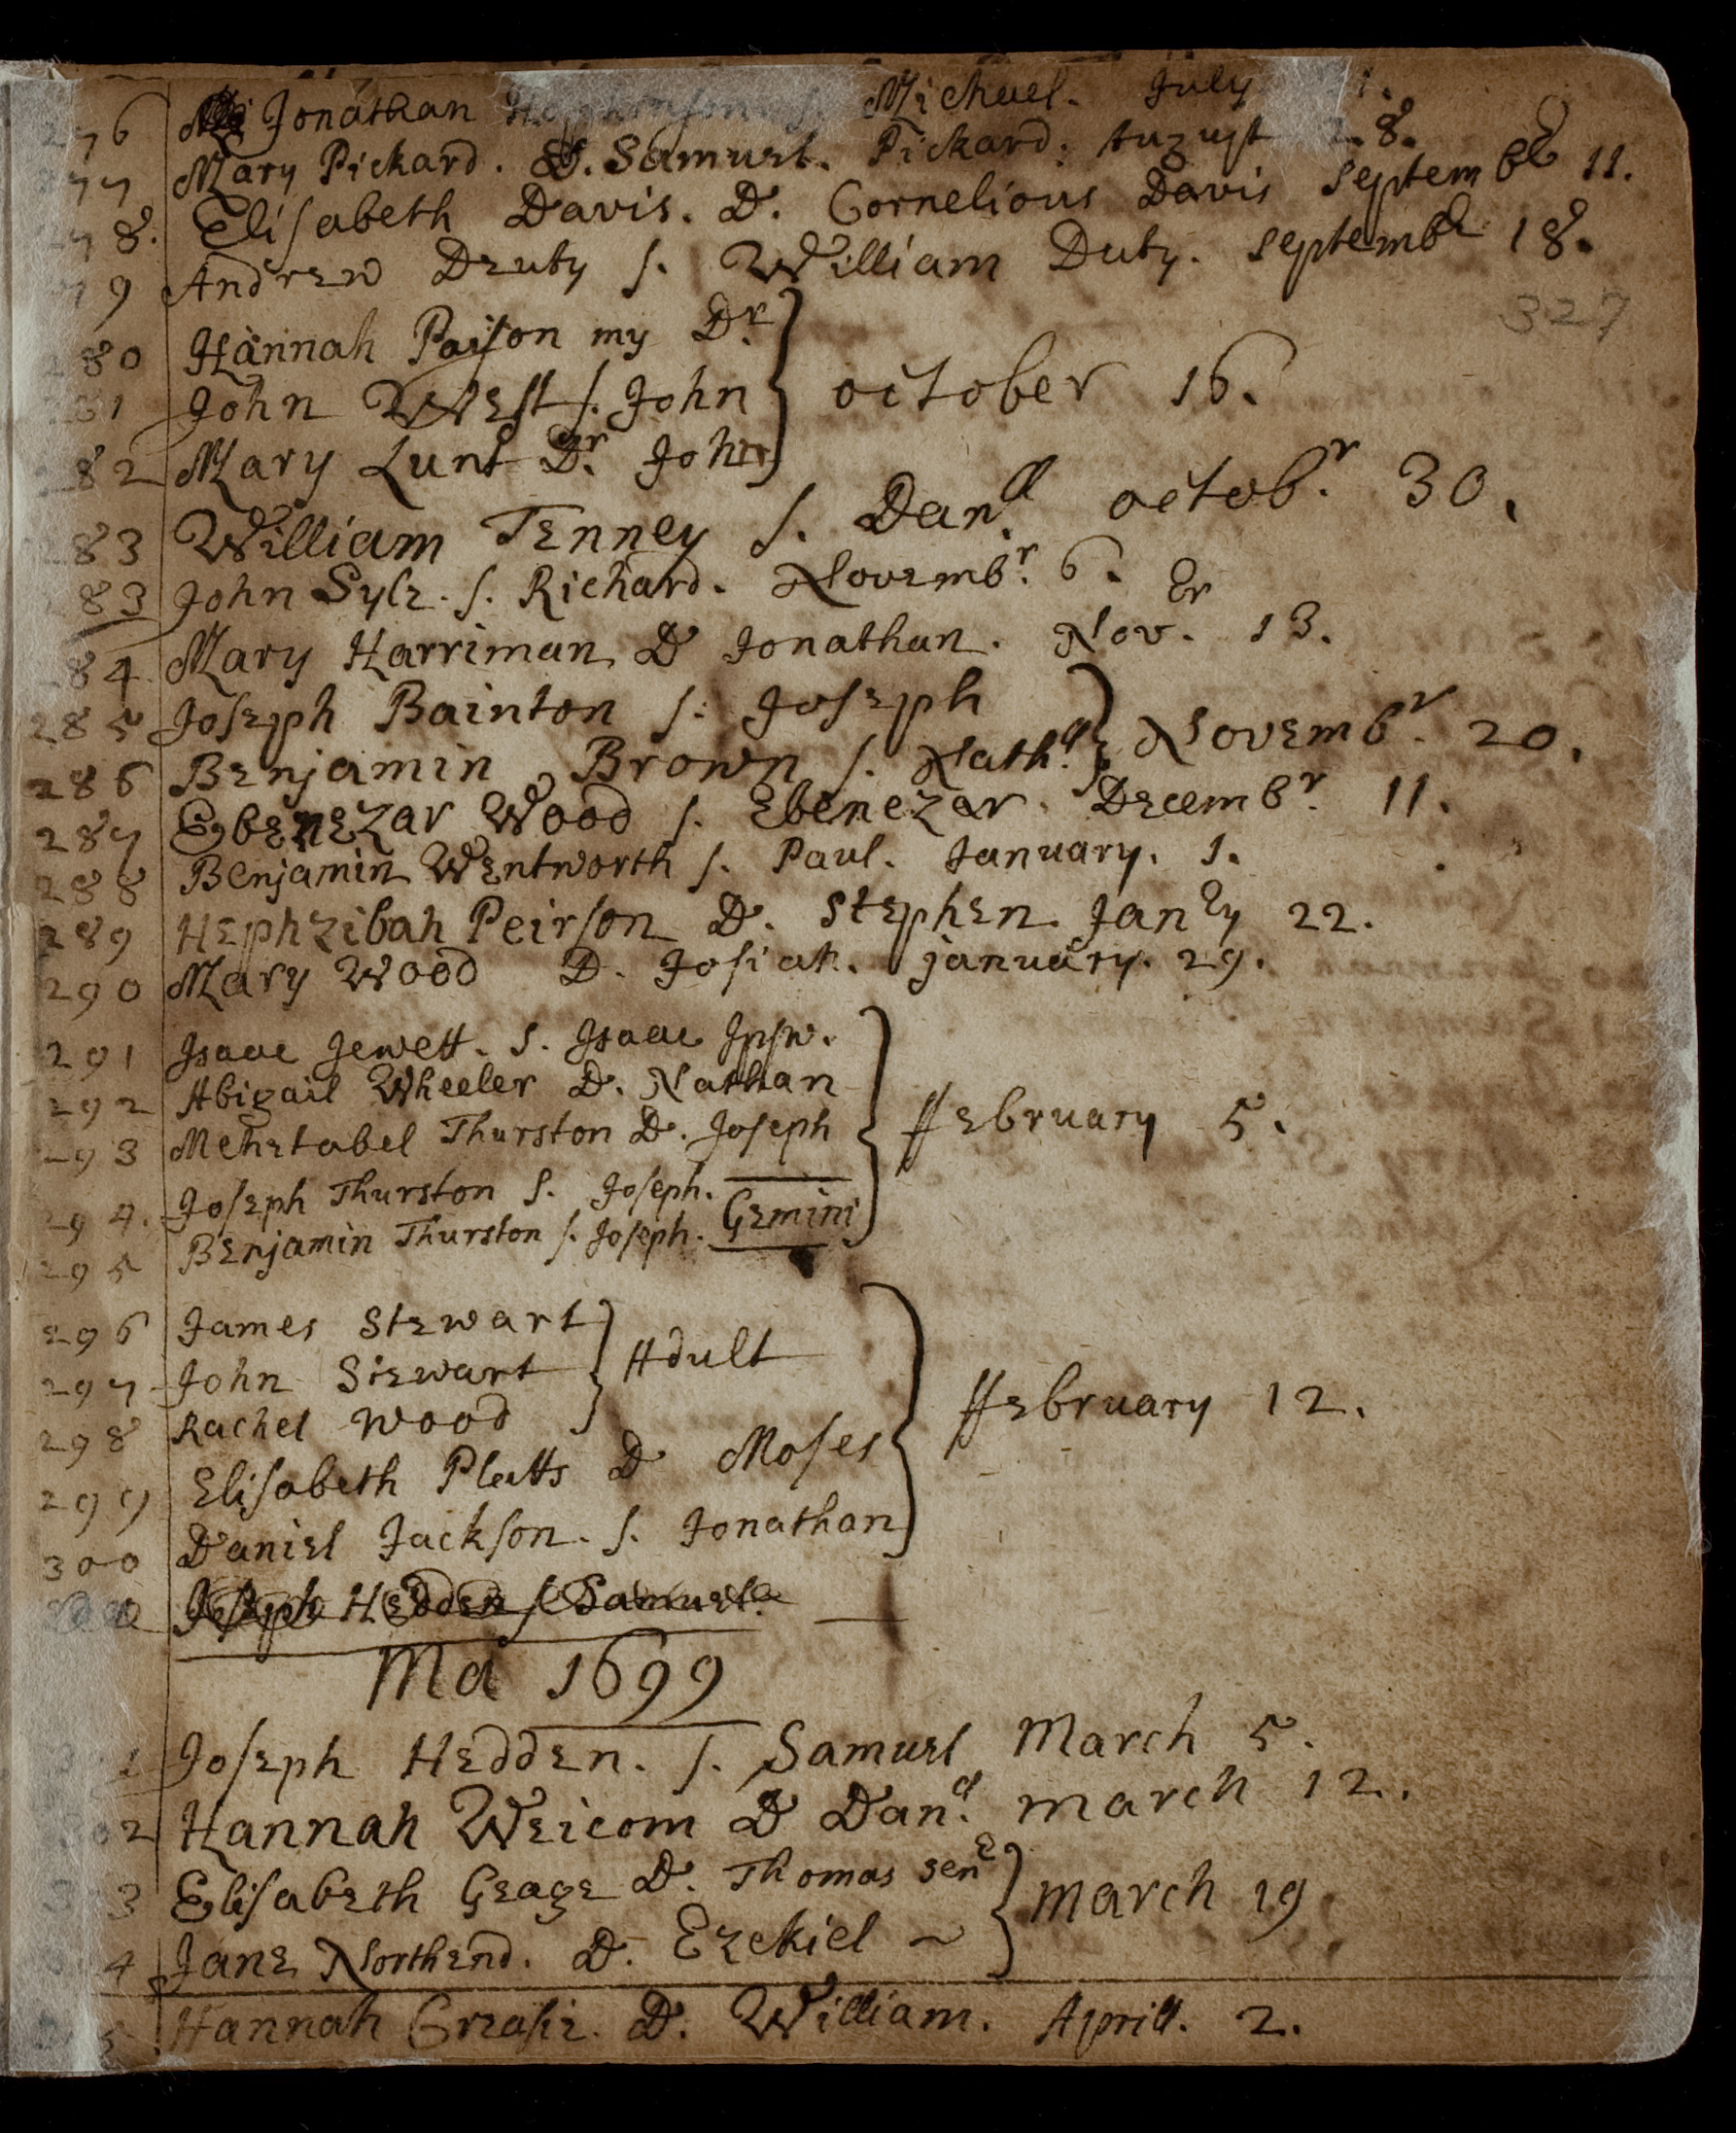 276 Jonathan Hopkinson s. Michael. July 1.
277 Mary Pickard. D. Samuel. Pickard. August 28.
278. Elisabeth Davis. D. Cornelious Davis Septembr 11.
279 Andrew Deuty s. William Duty. Septembr 18.
327
280 Hannah Paison my Dr.
281 John West s. John
october 16.
282 Mary Lunt Dr. John
283 William Tenney s. Danll. octobr. 30.
283 John Syle. s. Richard. Novembr. 6.
284 Mary Harriman D Jonathan. Novbr. 13.
285 Joseph Bainton s. Joseph
286 Benjamin Brown s. Nathll. Novembr. 20.
287 Ebenezar Wood s. Ebenezar. Decembr. 11.
288 Benjamin Wentworth s. Paul. January. 1.
289 Hephzibah Peirson D. Stephen Janry 22.
290 Mary Wood D. Josiah. january. 29.
291 Isaac Jewett. s. Isaac Ipsw.
292 Abigail Wheeler D. Nathan
293 Mehetabel Thurston D. Joseph
ffebruary 5.
294. Joseph Thurston s. Joseph.
Gemini
295 Benjamin Thurston s. Joseph.
296 James Stewart
297 John Stewart
Adult
298 Rachel Wood
ffebruary 12.
299 Elisabeth Platts D Moses
300 Daniel Jackson. s. Jonathan
Joseph Hedden s Samuel.
Ma 1699
301 Joseph Hedden. s. Samuel March 5.
302 Hannah Weicom D Danll. march 12.
303 Elisabeth Geage D. Thomas senr
march 19
304 Jane Northend. D. Ezekiel ~
305 Hannah Creasie. D. William. Aprill. 2.